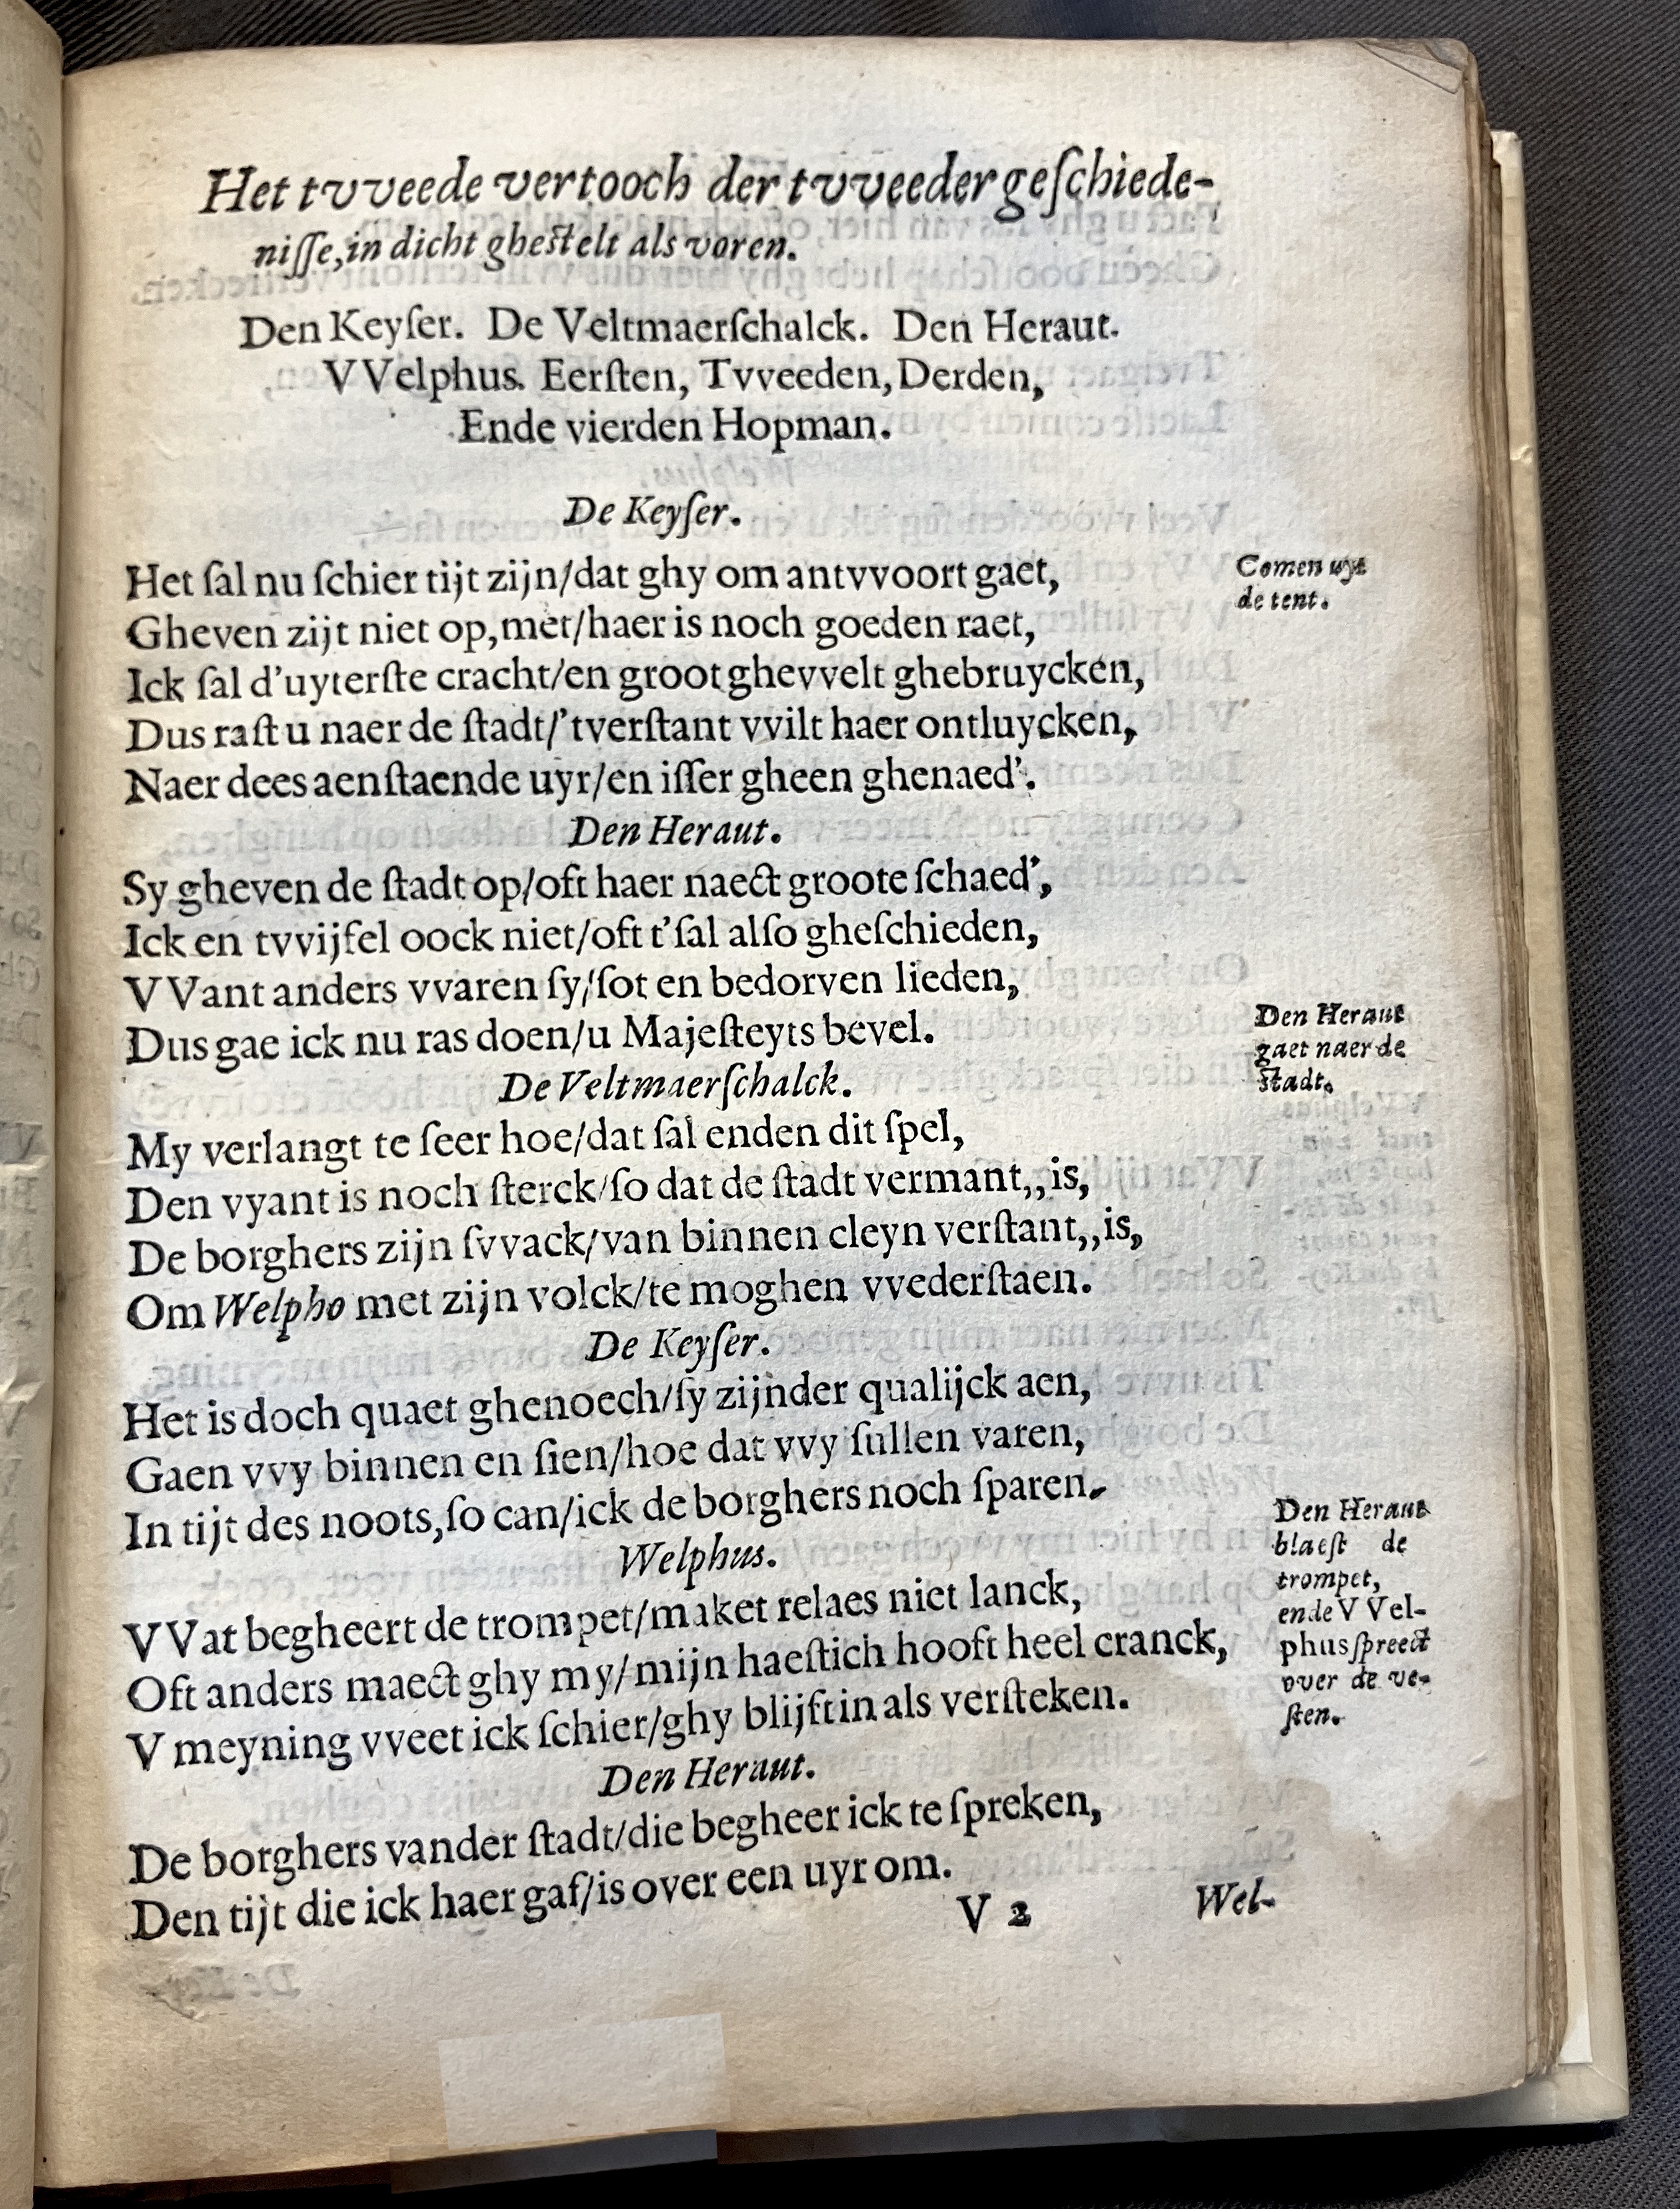 Het tvveede vertooch der tvveeder geſchiede-
niſſe, in dicht gheſtelt als voren.
Den Keyſer. De Veltmaerſchalck. Den Heraut.
VVelphus. Eerſten, Tvveeden, Derden,
Ende vierden Hopman.
De Keyſer.
Het ſal nu ſchier tijt zijn/dat ghy om antvvoort gaet,
Comen uyt
de tent.
Gheven zijt niet op, met/haer is noch goeden raet,
Ick ſal d'uyterſte cracht/en groot ghevvelt ghebruycken,
Dus raſt u naer de ſtadt/'tverſtant vvilt haer ontluycken,
Naer dees aenſtaende uyr/en iſſer gheen ghenaed'.
Den Heraut.
Sy gheven de ſtadt op/oft haer naect groote ſchaed',
Ick en tvvijfel oock niet/oft t'ſal alſo gheſchieden,
VVant anders vvaren ſy/ſot en bedorven lieden,
Dus gae ick nu ras doen/u Majeſteyts bevel.
Den Heraut
gaet naer de
ſtadt.
De Veltmaerſchalck.
My verlangt te ſeer hoe/dat ſal enden dit ſpel,
Den vyant is noch ſterck/ſo dat de ſtadt vermant,,is,
De borghers zijn ſvvack/van binnen cleyn verſtant,,is,
Om Welpho met zijn volck/te moghen vvederſtaen.
De Keyſer.
Het is doch quaet ghenoech/ſy zijnder qualijck aen,
Gaen vvy binnen en ſien/hoe dat vvy ſullen varen,
In tijt des noots, ſo can/ick de borghers noch ſparen.
Welphus.
Den Heraut
blaeſt de
trompet,
ende VVel-
phus ſpreect
over de ve-
ſten.
VVat begheert de trompet/maket relaes niet lanck,
Oft anders maect ghy my/mijn haeſtich hooft heel cranck,
V meyning vveet ick ſchier/ghy blijft in als verſteken.
Den Heraut.
De borghers vander ſtadt/die begheer ick te ſpreken,
Den tijt die ick haer gaf/is over een uyr om.
V 2
Wel-